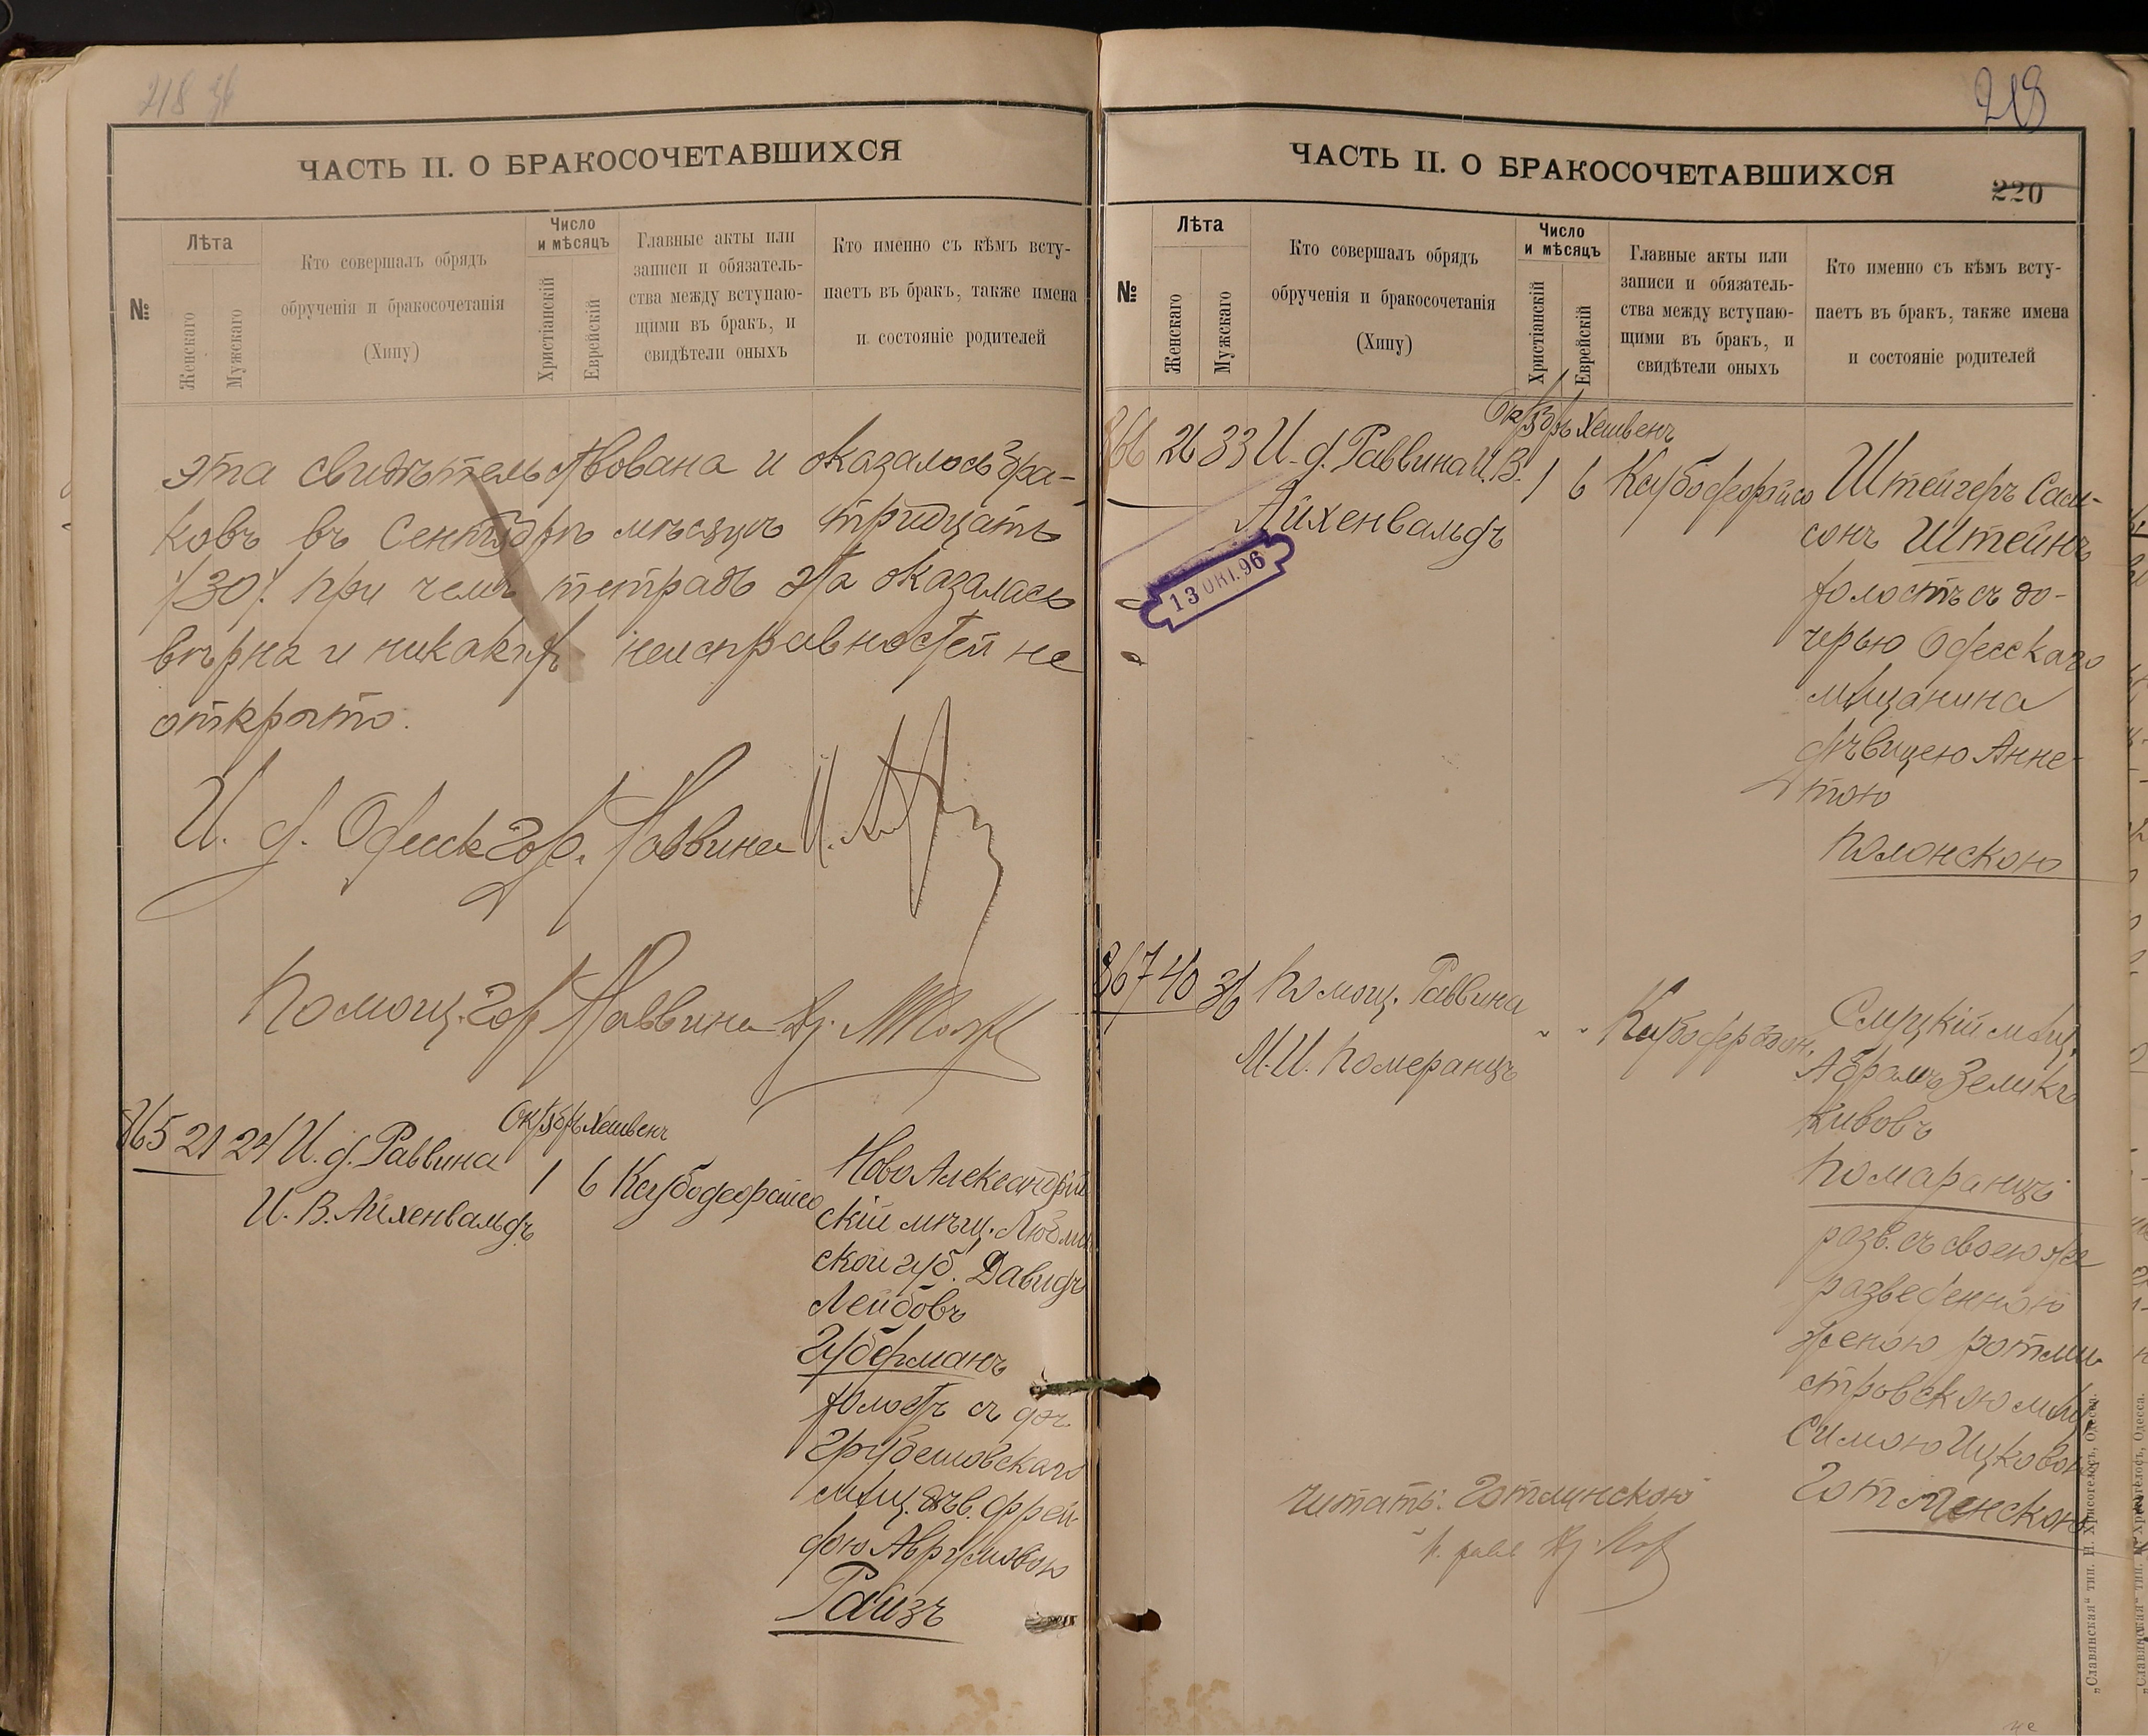 218 зв
ЧАСТЬ II. О БРАКОСОЧЕТАВШИХСЯ
№
Лѣта
Женскаго
Мужскаго
Кто совершалъ обрядъ
обрученія и бракосочетанія
(Хипу)
Число
и мѣсяцъ
Христіанскій
Еврейскій
Главные акты или
записи и обязатель-
ства между вступаю-
щими въ бракъ, и
свидѣтели оныхъ
Кто именно съ кѣмъ всту-
паетъ въ бракъ, также имена
и состояніе родителей
эта свидѣтельствована и оказалось бра-
ковъ въ Сентябрѣ мѣсяцѣ тридцать
/30/. при чемъ тетрадь эта оказалась
вѣрна и никакихъ неисправностей не
открыто.
И. д. Одесск гор. Раввина И.
Помощ. гор Раввина
Октябрь Хешвенъ
865 21 24 И. д. Раввина
И. В. Айхенвальдъ
1 6 Каубодеорайсо
НовоАлександрій
скій мѣщ. Любли
ской губ. Давидъ
Лейбовъ
Губерманъ
холостъ съ доч.
Грубешовскаго
мѣщ. дѣв. Фрей-
дою Аврумовою
Райзъ
218
ЧАСТЬ II. О БРАКОСОЧЕТАВШИХСЯ
220
№
Лѣта
Женскаго
Мужскаго
Кто совершалъ обрядъ
обрученія и бракосочетанія
(Хипу)
Число
и мѣсяцъ
Христіанскій
Еврейскій
Главные акты или
записи и обязатель-
ства между вступаю-
щими въ бракъ, и
свидѣтели оныхъ
Кто именно съ кѣмъ всту-
паетъ въ бракъ, также имена
и состояніе родителей
Октябрь Хешвенъ
866 26 33 И. д. Раввина И. В.
Айхенвальдъ
1 6 Каубодеорайсо
13 ОКТ. 96
Штейгеръ Сам-
сонъ Штейнъ
холостъ съ до-
черью Одесскаго
мѣщанина
дѣвицею Анне-
тою
Полонскою
867 40 36 Помощ. Раввина
М. И. Померанцъ
" " Каубодеорайсо
Слуцкій мѣщ.
Абрамъ Зеликъ
Кивовъ
Помаранцъ
разв. съ своею же
разведенною
женою ротми-
стровскою мѣщ.
Симою Ицковою
Готлинскою
читать: Готлинскою
„Славянская" тип. Н. Хрисогелосъ, Одесса.